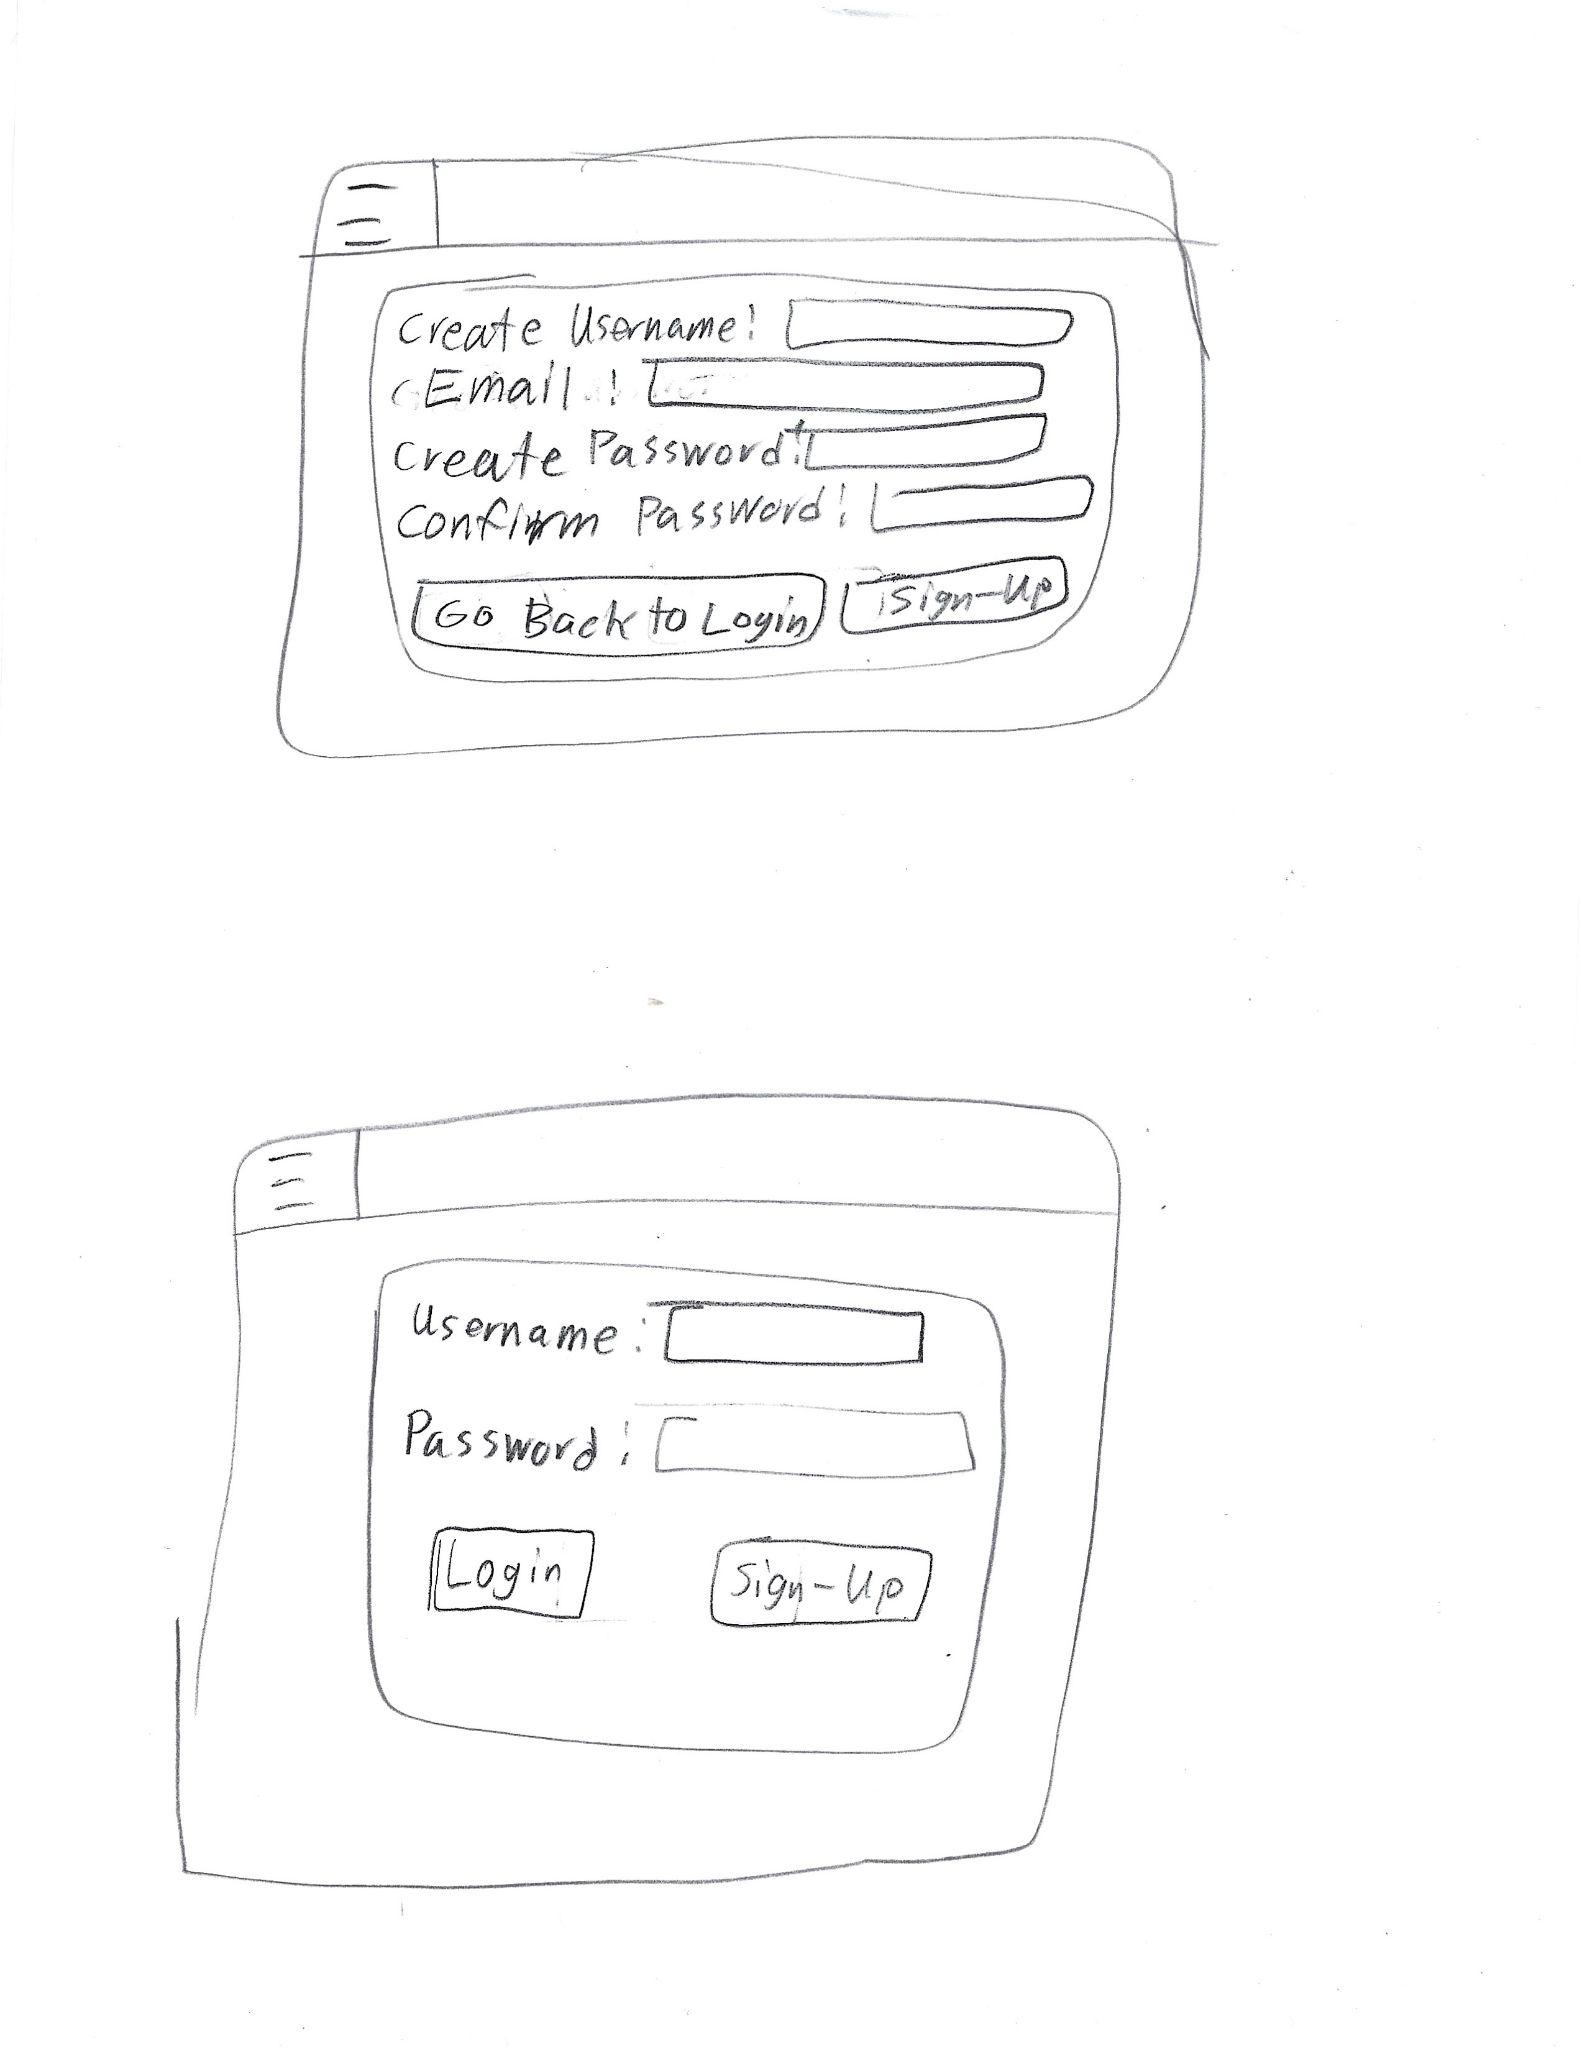 Create Username:
Email:
Create Password:
Confirm Password:
Go Back to Login Sign-Up
Username:
Password:
Login Sign-Up